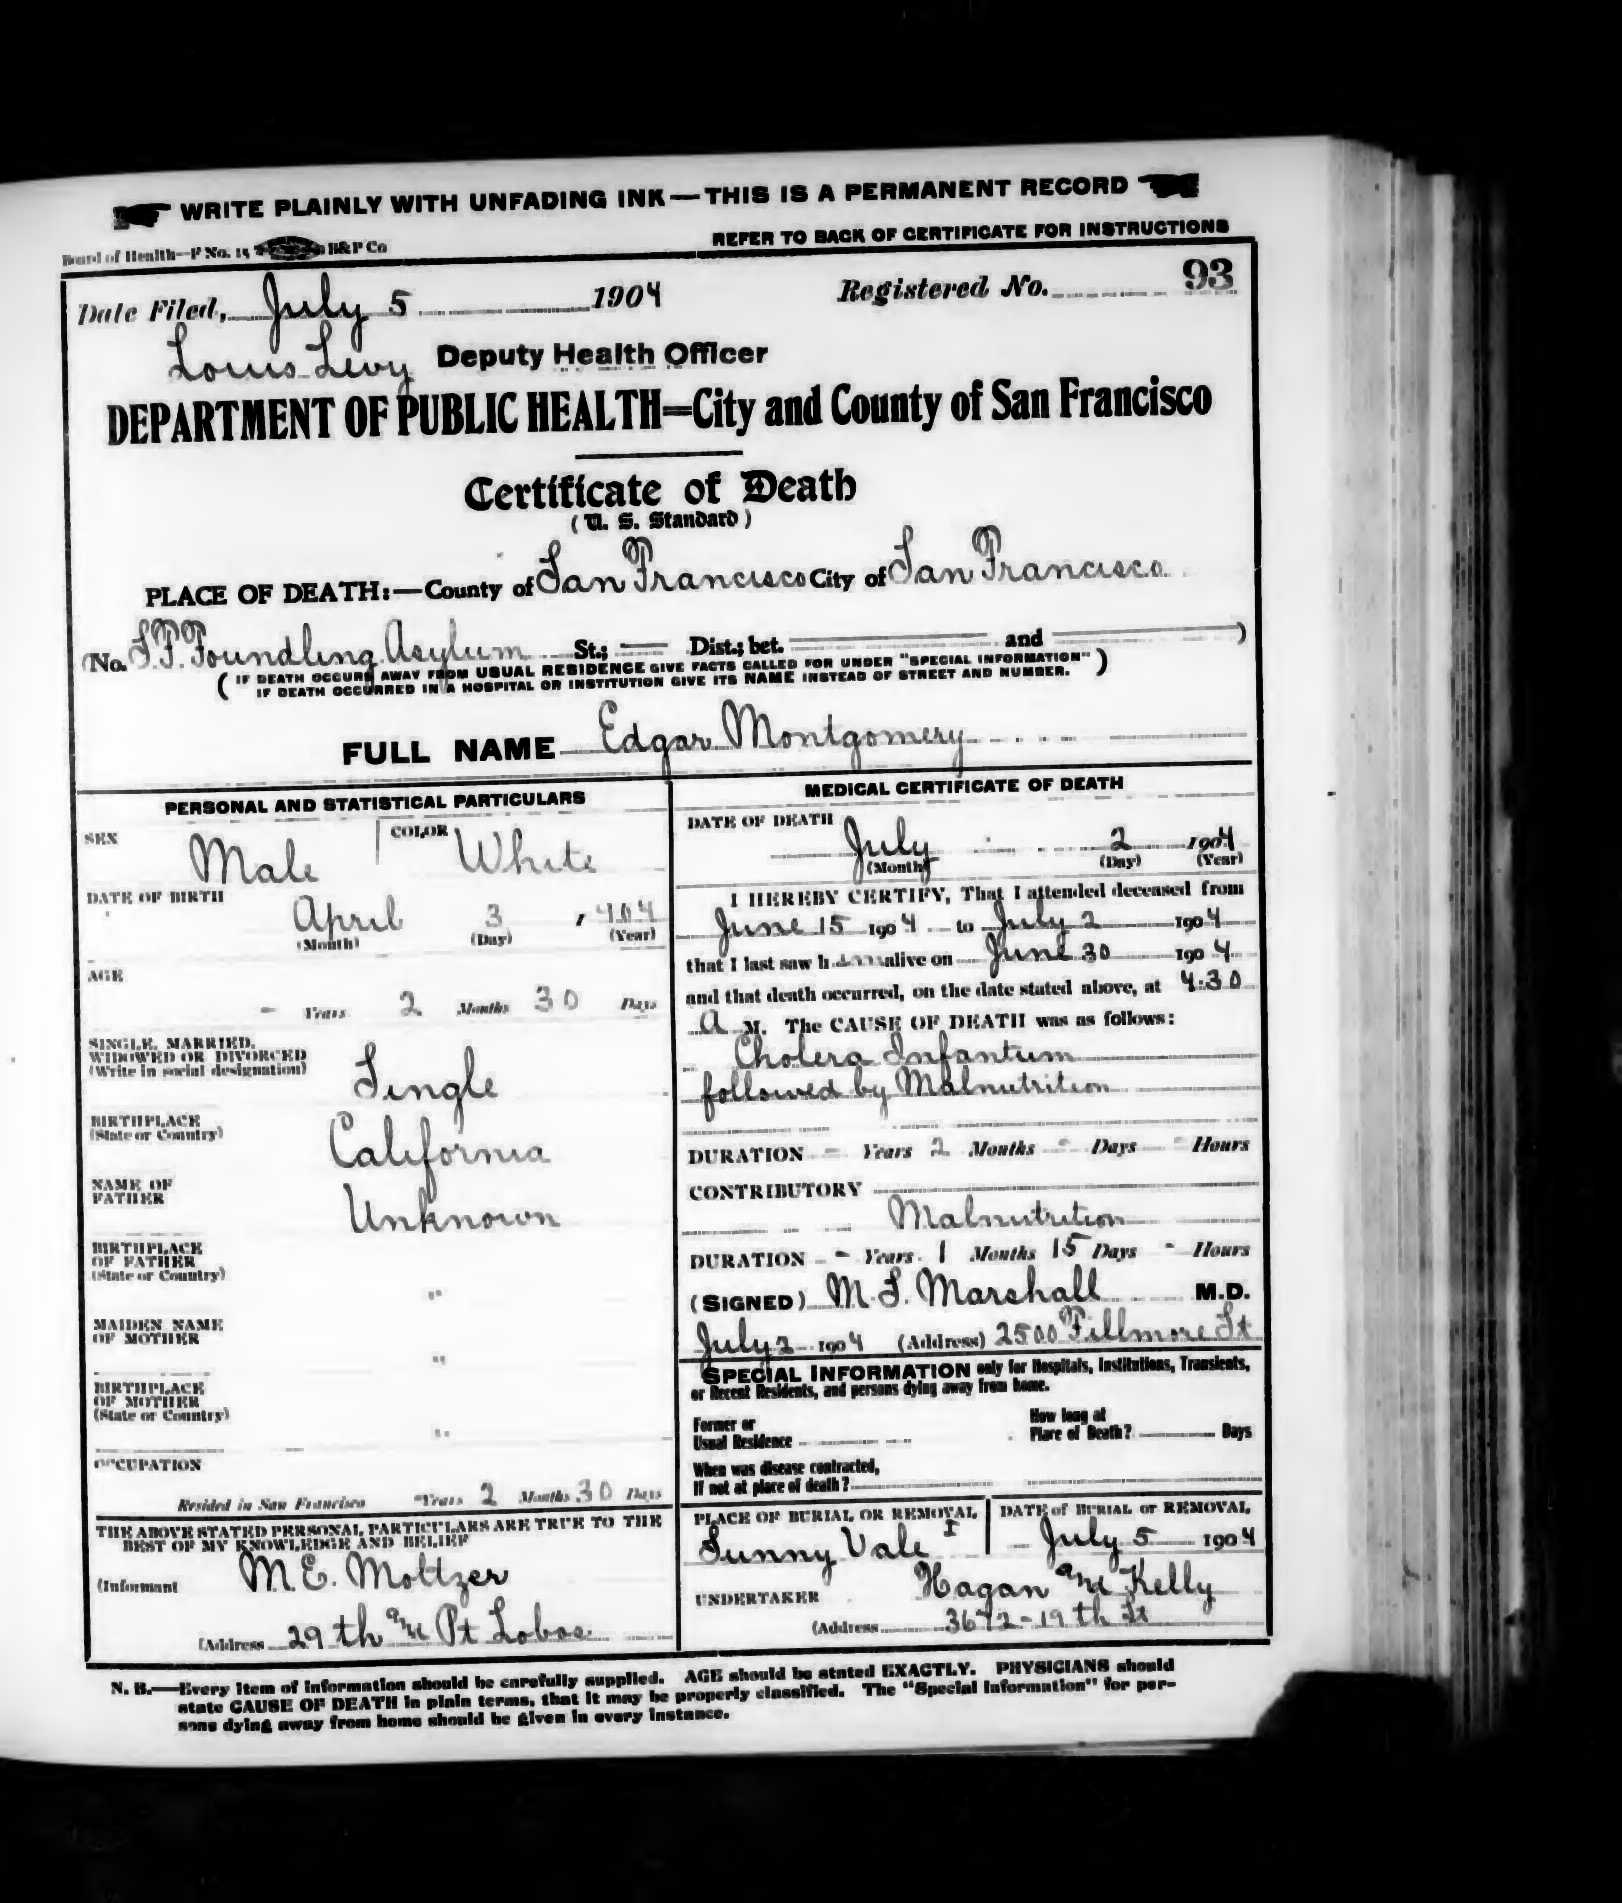 WRITE PLAINLY WITH UNFADING INK—THIS IS A PERMANENT RECORD
Board of Health—F No. 15 H&P Co
REFER TO BACK OF CERTIFICATE FOR INSTRUCTIONS
Date Filed, July 5 1904 Registered No. 93
Louis Levy Deputy Health Officer
DEPARTMENT OF PUBLIC HEALTH=City and County of San Francisco
Certificate of Death
(U. S. Standard)
PLACE OF DEATH:—County of San Francisco City of San Francisco
(No. S.F. Foundling Asylum St.; Dist.; bet. and )
(IF DEATH OCCURS AWAY FROM USUAL RESIDENCE GIVE FACTS CALLED FOR UNDER "SPECIAL INFORMATION"
IF DEATH OCCURRED IN A HOSPITAL OR INSTITUTION GIVE ITS NAME INSTEAD OF STREET AND NUMBER.)
FULL NAME Edgar Montgomery
PERSONAL AND STATISTICAL PARTICULARS
SEX Male COLOR White
DATE OF BIRTH
April 3, 1904
(Month) (Day) (Year)
AGE
- Years 2 Months 30 Days
SINGLE, MARRIED,
WIDOWED OR DIVORCED
(Write in social designation)
Single
BIRTHPLACE
(State or Country)
California
NAME OF
FATHER
Unknown
BIRTHPLACE
OF FATHER
(State or Country)
"
MAIDEN NAME
OF MOTHER
"
BIRTHPLACE
OF MOTHER
(State or Country)
"
OCCUPATION
Resided in San Francisco - Years 2 Months 30 Days
THE ABOVE STATED PERSONAL PARTICULARS ARE TRUE TO THE
BEST OF MY KNOWLEDGE AND BELIEF
(Informant M.E. Moltzer
(Address 29th and Pt Lobos
MEDICAL CERTIFICATE OF DEATH
DATE OF DEATH
July 2 1904
(Month) (Day) (Year)
I HEREBY CERTIFY, That I attended deceased from
June 15 1904 to July 2 1904
that I last saw him alive on June 30 1904
and that death occurred, on the date stated above, at 4:30
A M. The CAUSE OF DEATH was as follows:
Cholera Infantum
followed by Malnutrition
DURATION - Years 2 Months - Days - Hours
CONTRIBUTORY
Malnutrition
DURATION - Years 1 Months 15 Days - Hours
(SIGNED) M. S. Marshall M.D.
July 2 1904 (Address) 2500 Fillmore St
SPECIAL INFORMATION only for Hospitals, Institutions, Transients,
or Recent Residents, and persons dying away from home.
Former or
Usual Residence
How long at
Place of Death? Days
When was disease contracted,
If not at place of death?
PLACE OF BURIAL OR REMOVAL
Sunny Vale I
DATE of BURIAL or REMOVAL
July 5 1904
UNDERTAKER Hagan and Kelly
(Address 3672-19th St
N. B.—Every item of information should be carefully supplied. AGE should be stated EXACTLY. PHYSICIANS should
state CAUSE OF DEATH in plain terms, that it may be properly classified. The "Special Information" for per-
sons dying away from home should be given in every instance.